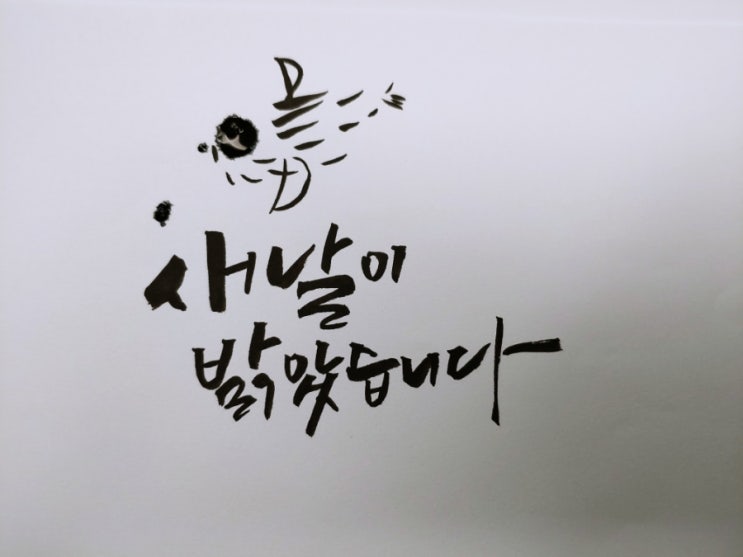 새날이
밝았습니다